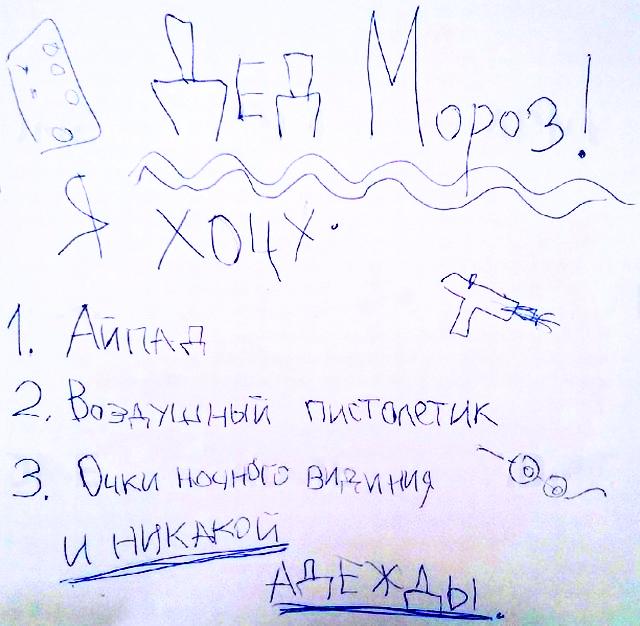 ДЕД Мороз!
Я ХОЧУ.
1. Айпад
2. Воздушный пистолетик
3. Очки ночного видиния
и никакой
АДЕЖДЫ.